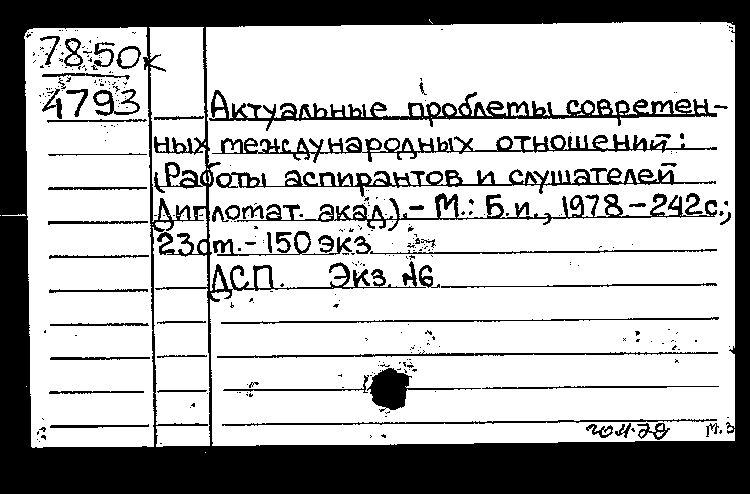 78-50к
4793
Актуальные проблемы современ-
ных международных отношений:
(Работы аспирантов и слушателей
Дипломат. акад.).- М.: Б.и., 1978-242с.;
23см.-150 экз.
ДСП. Экз. №6.
М.З